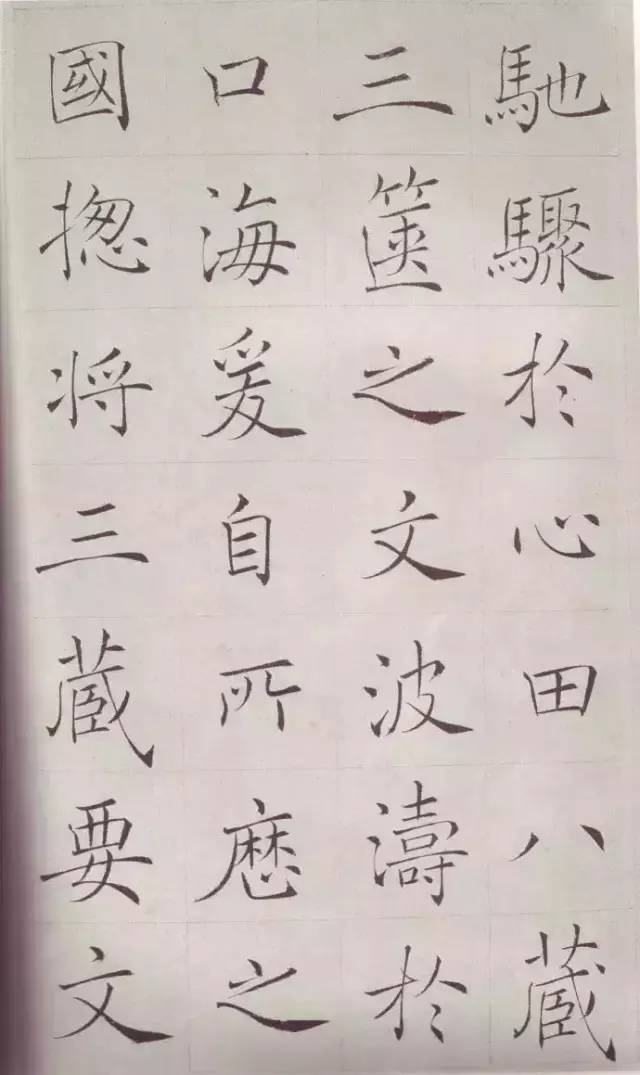 馳驟於心田八蔵
三篋之文波濤於
口海爰自所歴之
國揔将三蔵要文